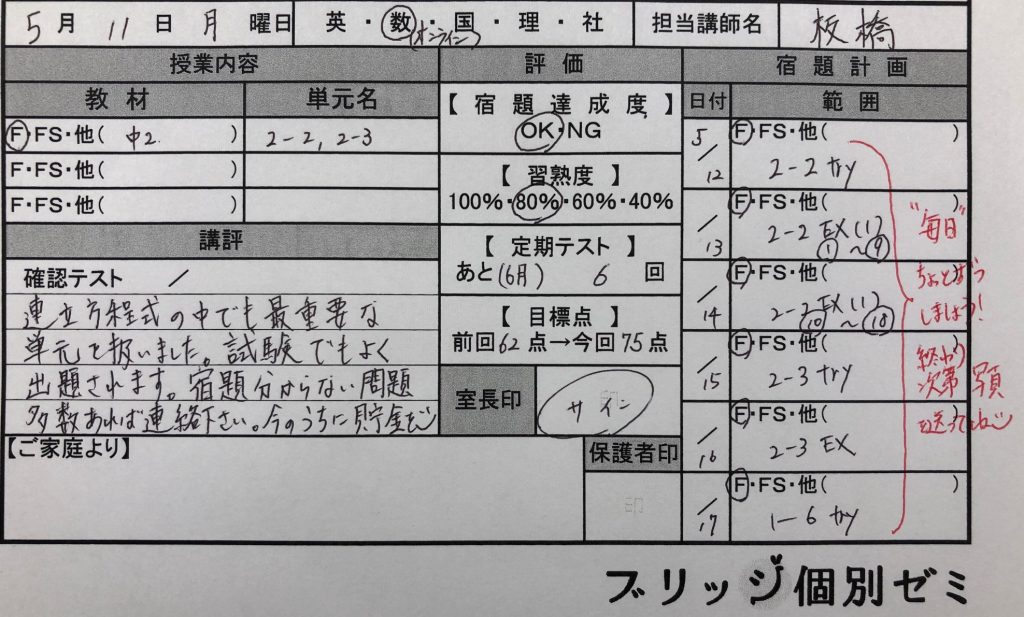 5月 11日 月 曜日 英・数・国・理・社 担当講師名 板橋
(オンライン)
授業内容 評価 宿題計画
教材 単元名 【宿題達成度】 日付 範囲
F・FS・他( 中2. ) 2-2, 2-3 OK・NG 5/12 F・FS・他( )
2-2 try
F・FS・他( ) 【習熟度】
F・FS・他( ) 100%・80%・60%・40% /13 F・FS・他( )
2-2 EX(1)
①~⑨
講評 【定期テスト】
確認テスト / あと(6月) 6 回 /14 F・FS・他( )
2-2 EX(1)
⑩~⑱
連立方程式の中でも最重要な
単元を扱いました。試験でもよく
出題されます。宿題分からない問題
多数あれば連絡下さい。今のうちに貯金を
【目標点】
前回62点→今回75点 /15 F・FS・他( )
2-3 try
室長印 サイン /16 F・FS・他( )
2-3 EX
【ご家庭より】 保護者印
印 /17 F・FS・他( )
1-6 try
"毎日"
ちょっとずつ
しましょう!
終わり
次第 写真
送ってね
ブリッジ個別ゼミ